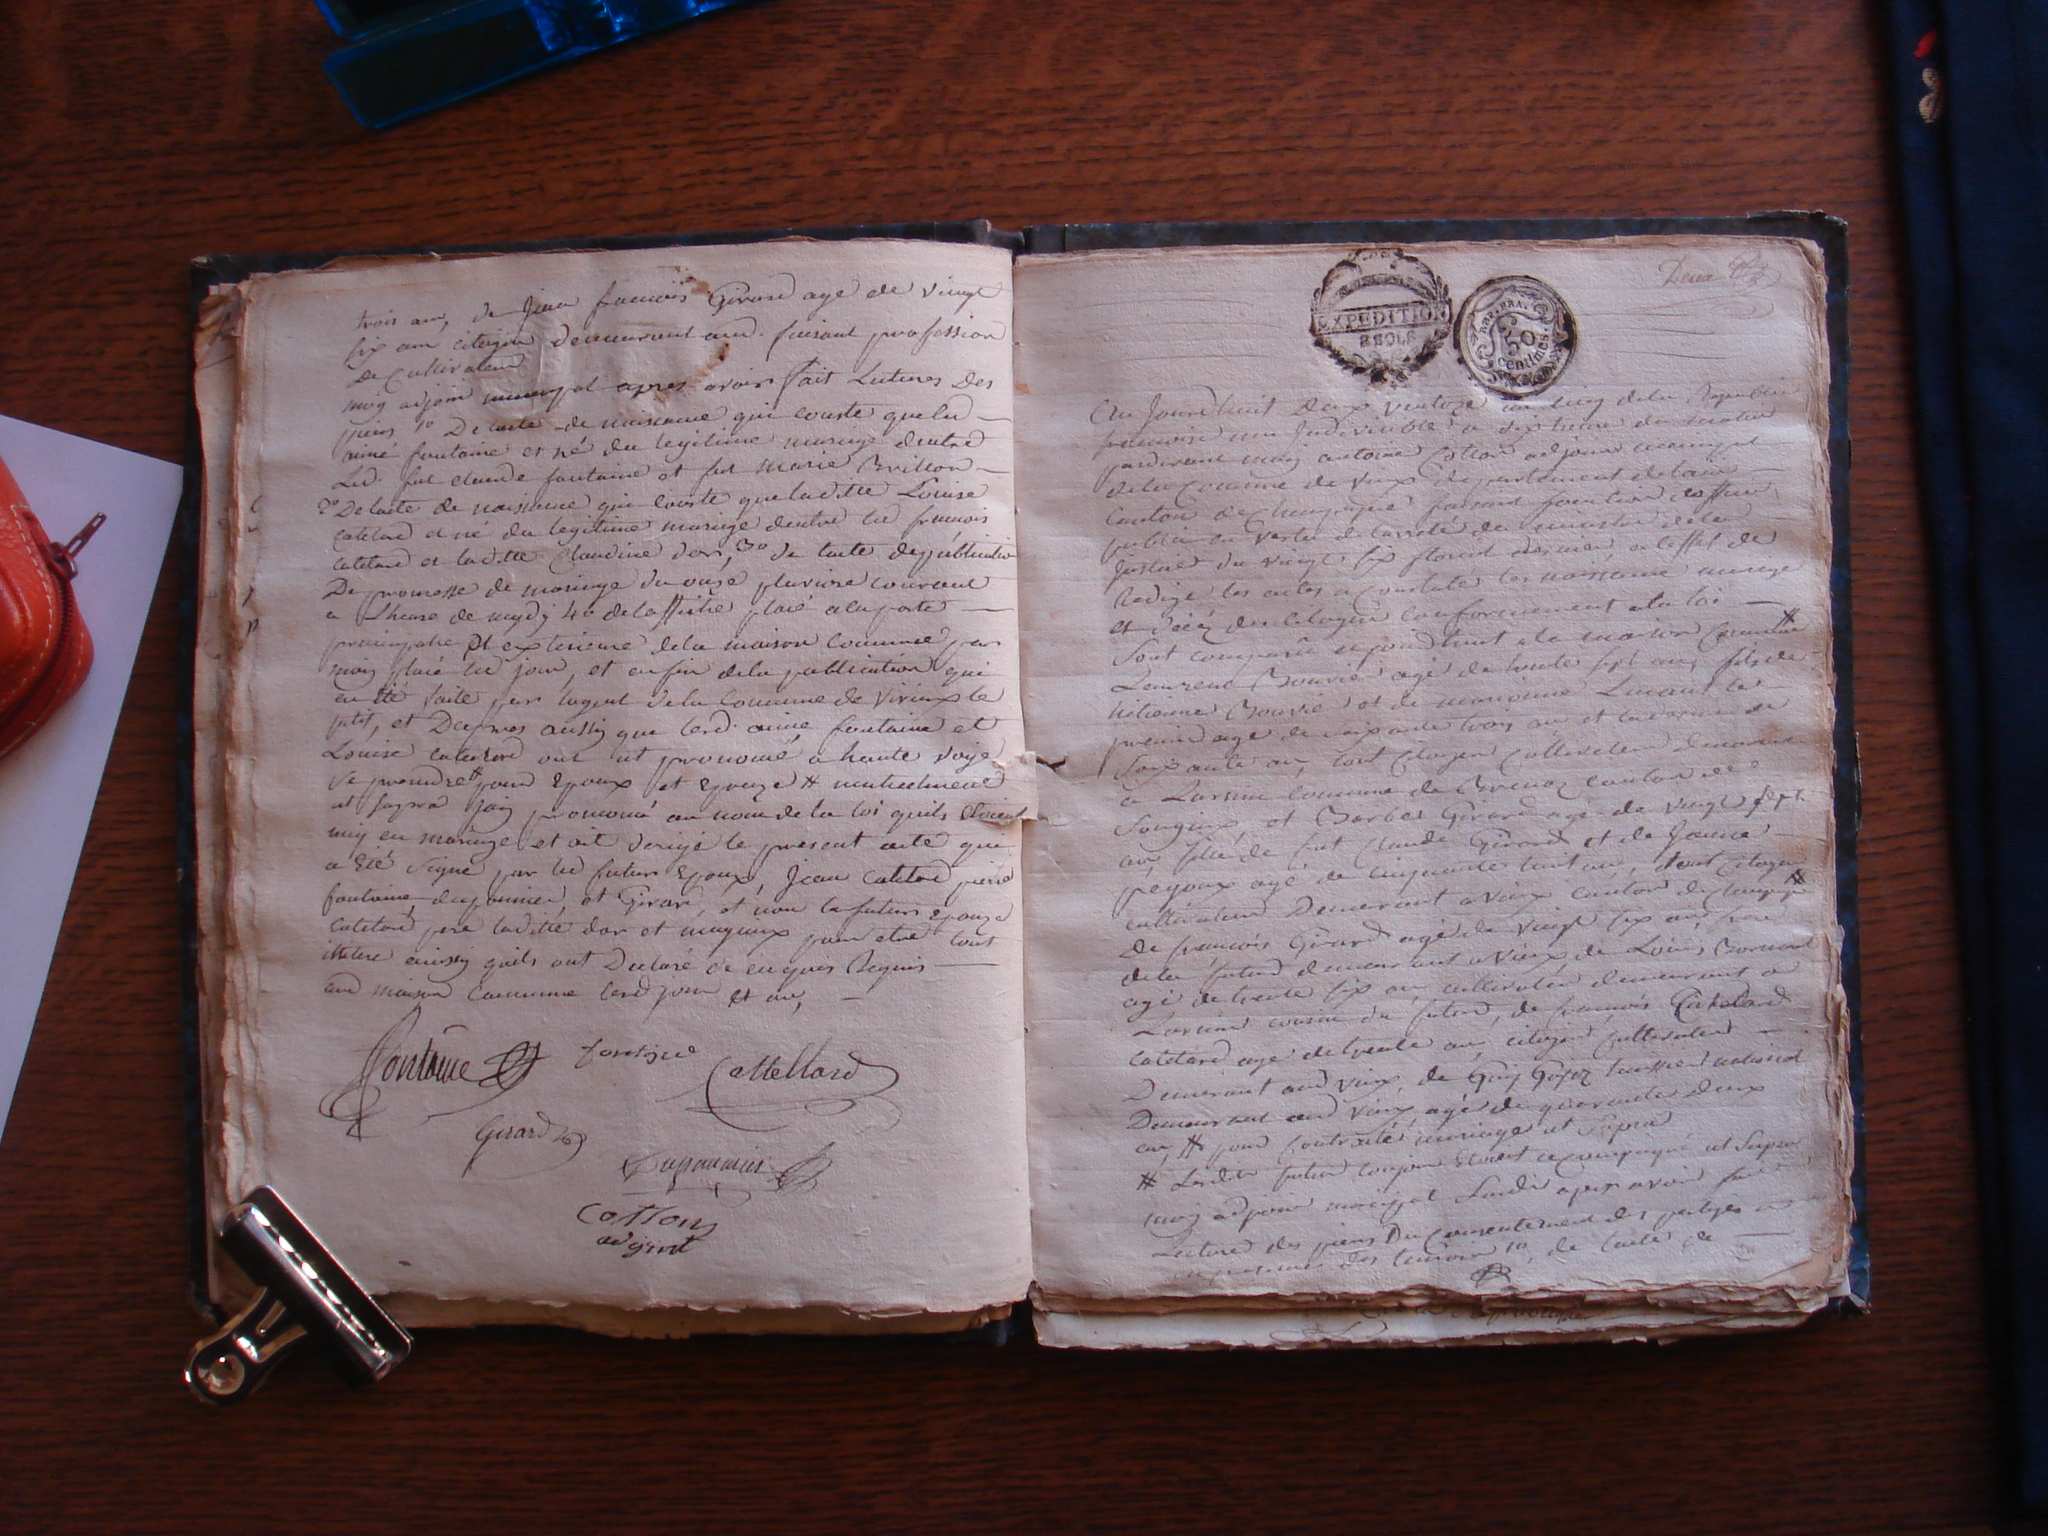 trois ans, de Jean francois Girard agé de vingt
six ans citoyen demeurant aud. faisant profession
de cultivateur
moy adjoint municipal apres avoir fait Lectures des
pieces 1o De lacte de naissance qui conste que led
aimé fontaine est né du legitime mariage dentre
Led. fut claude fontaine et fut marie Brillon
2o De lacte de naissance qui conste que laditte Louise
catelard est né du legitime mariage dentre led francois
catelard et laditte Claudine dor, 3o de lacte de publication
De promesse de mariage du onze pluviose courant
a Lheure de mydy 4o de laffiche placé a la porte
principale et exterieure de la maison commune par
moy placé led jour, et enfin de la publication qui
en été faite par lagent de la commune de Virieux le
petit, et Dapres aussy que lesd. aimé fontaine et
Louise catelard ont ut prononcé a haute voye
se prendre pour Epoux et epouze # mutuelement
ut supra jay prononcé au nom de la loi quils étoient
uny en mariage et ait derigé le present acte qui
a été signé par led futurs Epoux, Jean catelard pierre
fontaine, duponnier, et Girard, et non la future epouze
catelard pere laditte dor et pour etre tout
illitere ainsy quils ont Declaré de enquis Requis
aud maison commune lesd jour et an,
Fontaine fontaine Cattellard
Girard
Duponnier
Cotton
adjoint
Deux
EXPEDITION
REGLE
REP. FRA.
50
Centimes
Aujourdhuit deux ventoze an cinq de la Republique
francoise une Indivisible a dix heure du matin
pardevant moy antoine Cotton adjoint municipal
de la Commune de vieux departement de lain
canton de champagne faisant fonction dofficier
public en vertu de larreté du ministre de la
Justice du vingt six floreal dernier, a leffet de
Redigé les actes a constaté les naissance mariage
et décéz des citoyen conformement a la loi
Sont comparu aujourdhuit a la maison Commune #
Laurent Bouvié agé de trente sept ans, fils de
hétienne Bouvié et de marianne Lucand le
premier agé de soixante trois ans et la derniere de
soixante ans, tout Citoyen Cultivateur demeurant
a Larsin commune de Brenaz canton de
Songieux et Barbe Girard agé de vingt sept
ans fille de fut Claude Girard et de Jeanne
peyoux agé de cinquante huit ans, tout citoyen
cultivateur Demeurant a Vieux canton de champagne #
De francois Girard agé de vingt six ans frere
de la future demeurant a vieux de Louis Bornard
agé de trente six ans cultivateur demeurant a
Larsin cousin du futur, de francois Catelard
catelard agé de trente ans citoyen cultivateur
Demeurant aud vieux, de Guy Goyoz huissier national
Demeurant aud vieux agé de quarante deux
ans # pour contracté mariage ut supra
# Lesdits futur conjoint étoient accompagné ut supra
moy adjoint municipal Susdit apres avoir fait
Lecture des pieces Du consentement des partyes
en presence des temoins 1o, de lacte de